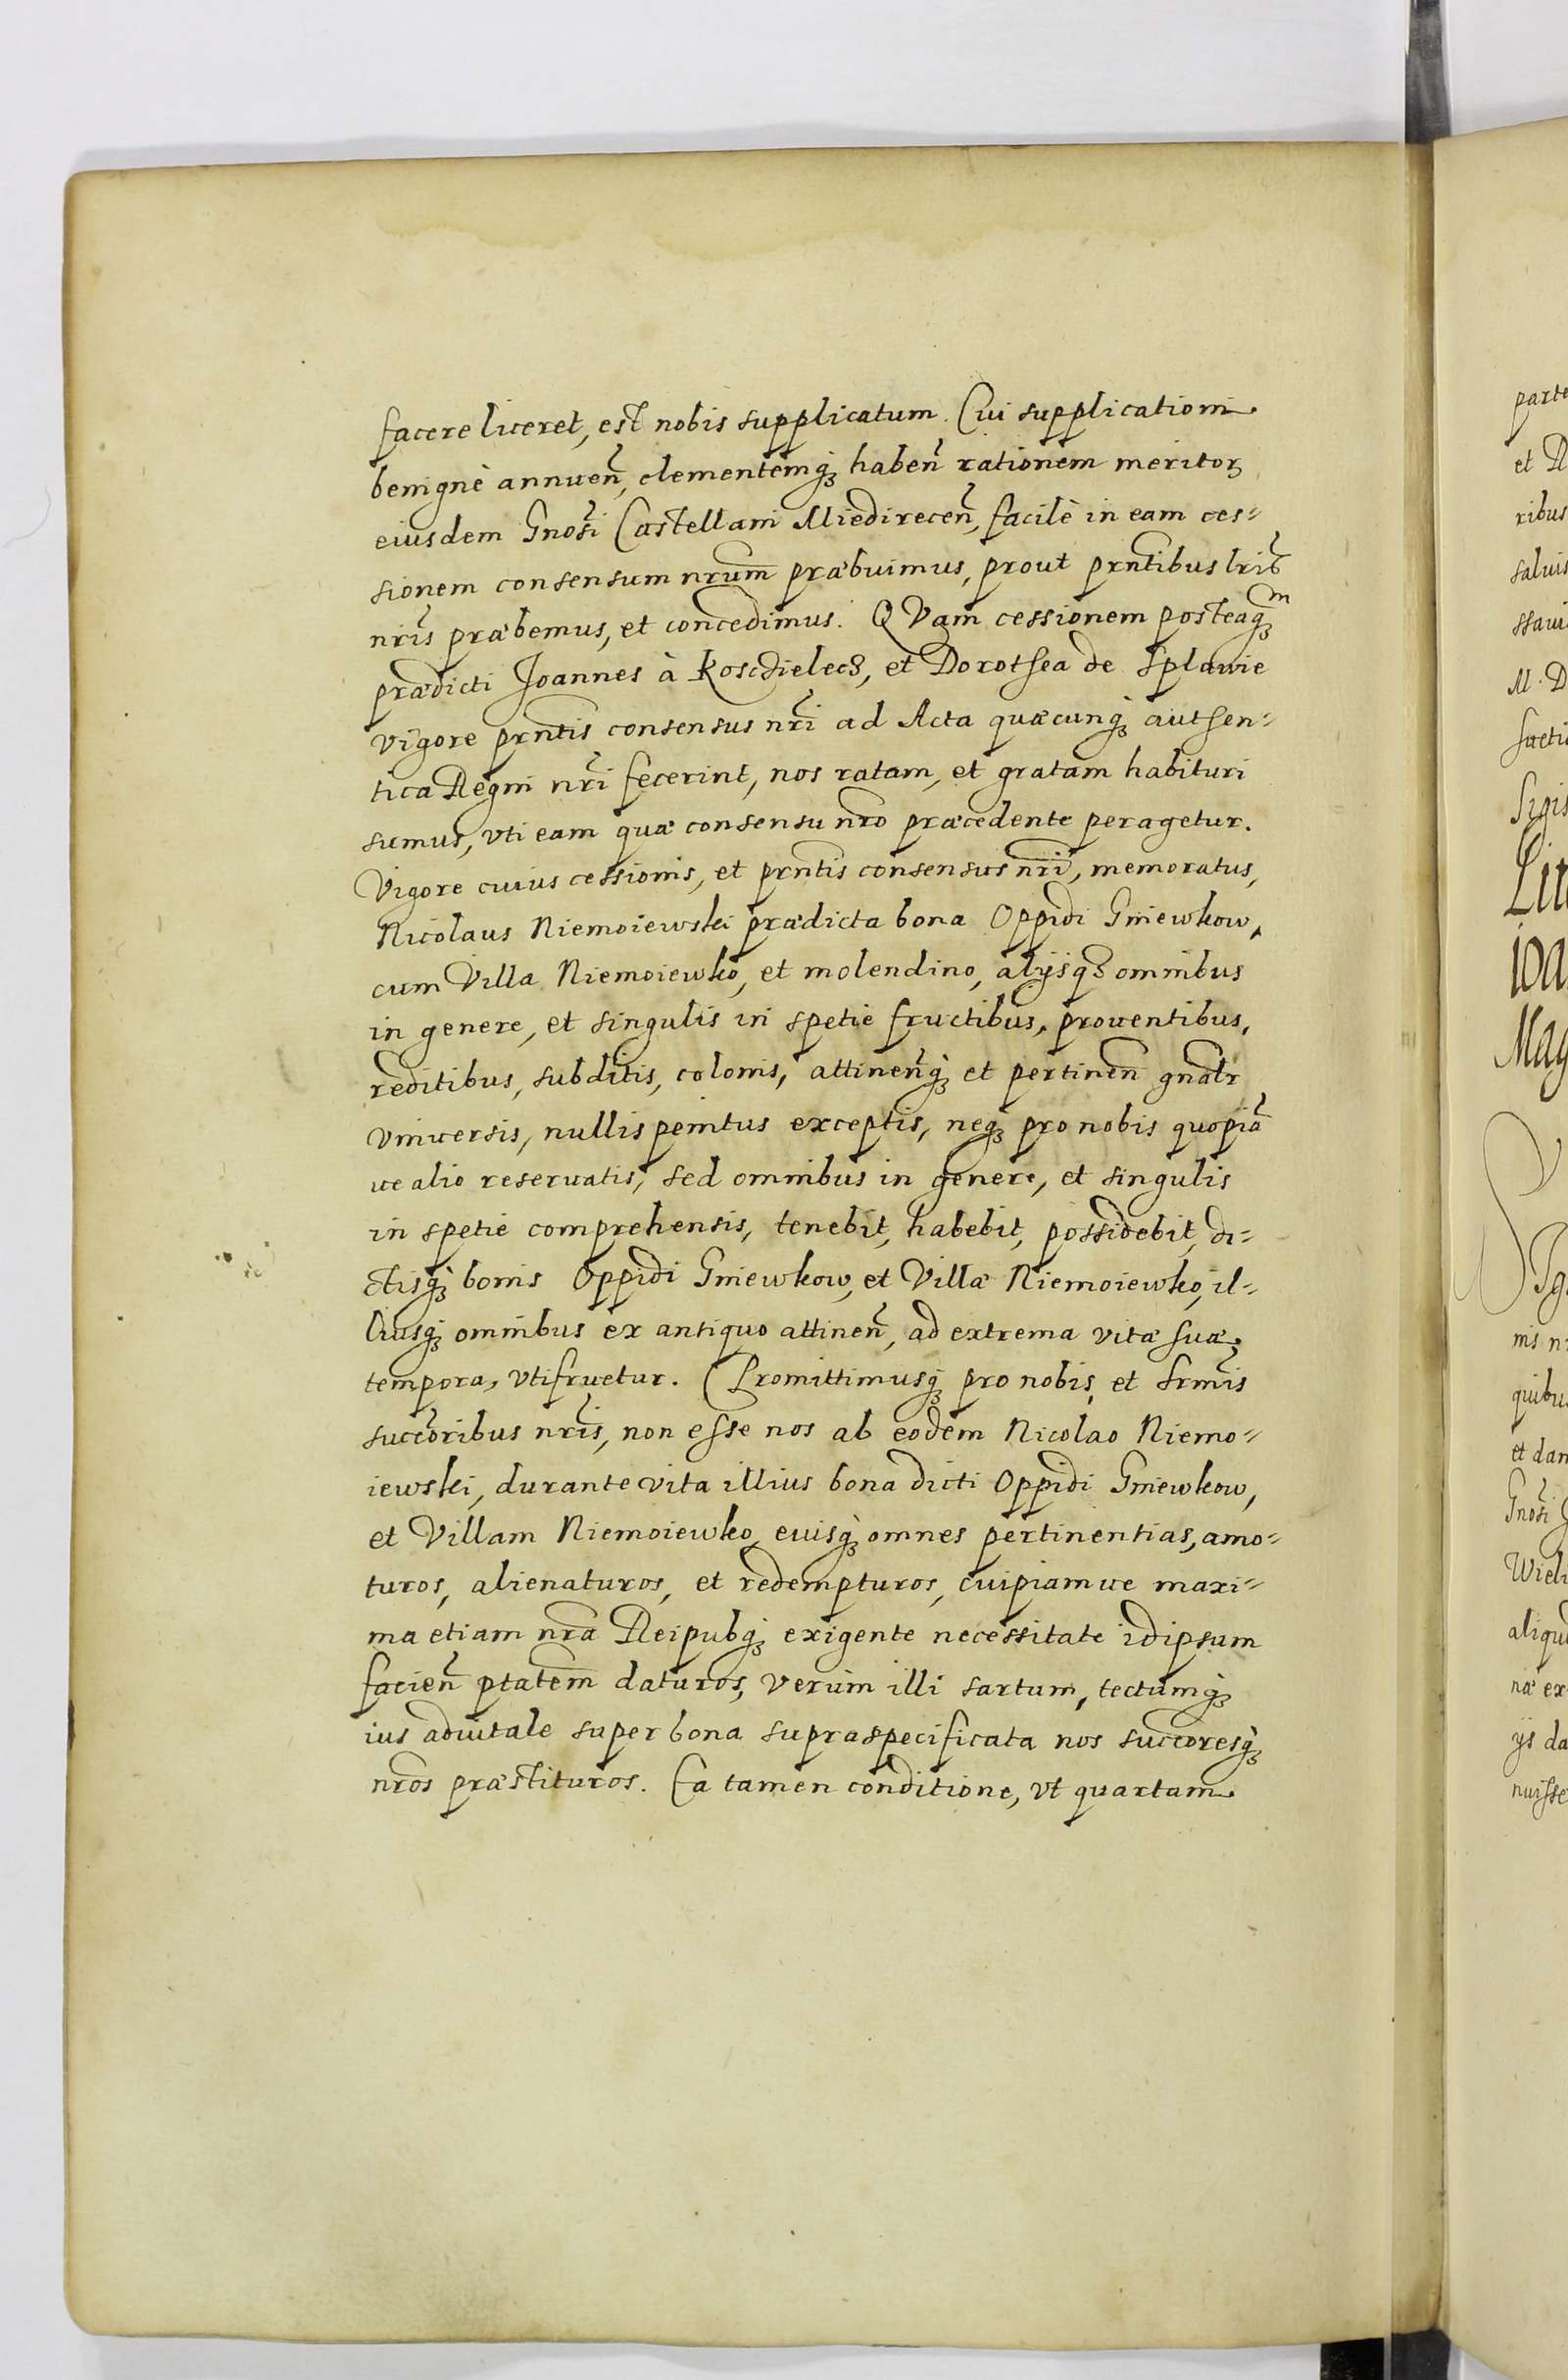 facere liceret, est nobis supplicatum. Cui supplicationi
benignè annuen̄, clementemq́ꝫ haben̄ rationem meritoꝝ
eiusdem Gnosi Castellani Miedirecen̄, facilè in eam ces⸗
sionem consensum nrum̄ præbuimus, prout prn̄tibus lris̄
nris̄ præbemus, et concedimus. QVam cessionem posteaqꝫᵐ
prædicti Joannes à Koscdielecz, et Dorothea de Splawie
vigore prn̄tis consensus nrī ad Acta quæcunq́ꝫ authen⸗
tica Regni nrī fecerint, nos ratam, et gratam habituri
sumus, vti eam quæ consensu nrō præcedente peragetur.
Vigore cuius cessionis, et prn̄tis consensus nrī, memoratus,
Nicolaus Niemoiewski prædicta bona Oppidi Gniewkow,
cum Villa Niemoiewko, et molendino, alijsqꝫ omnibus
in genere, et singulis in spetie fructibus, prouentibus,
reditibus, subditis, colonis, attinen̄q́ꝫ et pertinen̄ gnal̄r
vniuersis, nullis penitus exceptis, neqꝫ pro nobis quopiā
ue alio reseruatis, sed omnibus in genere, et singulis
in spetie comprehensis, tenebit, habebit, possidebit, di⸗
ctisq́ꝫ bonis Oppidi Gniewkow, et Villæ Niemoiewko, il⸗
liusq́ꝫ omnibus ex antiquo attinen̄, ad extrema vitæ suæ
tempora, vtifruetur. Promittimusq́ꝫ pro nobis, et Srmīs
succōribus nrīs, non esse nos ab eodem Nicolao Niemo⸗
iewski, durante vita illius bona dicti Oppidi Gniewkow,
et Villam Niemoiewko, euisq́ꝫ omnes pertinentias, amo⸗
turos, alienaturos, et redempturos, cuipiamue maxi⸗
ma etiam nrā Reipubq́ꝫ exigente necessitate idipsum
facien̄ ptātem daturos, verùm illi sartum, tectumq́ꝫ
ius aduitale super bona supraspecificata nos succoresq́ꝫ
nrōs præstituros. Ea tamen conditione, vt quartam